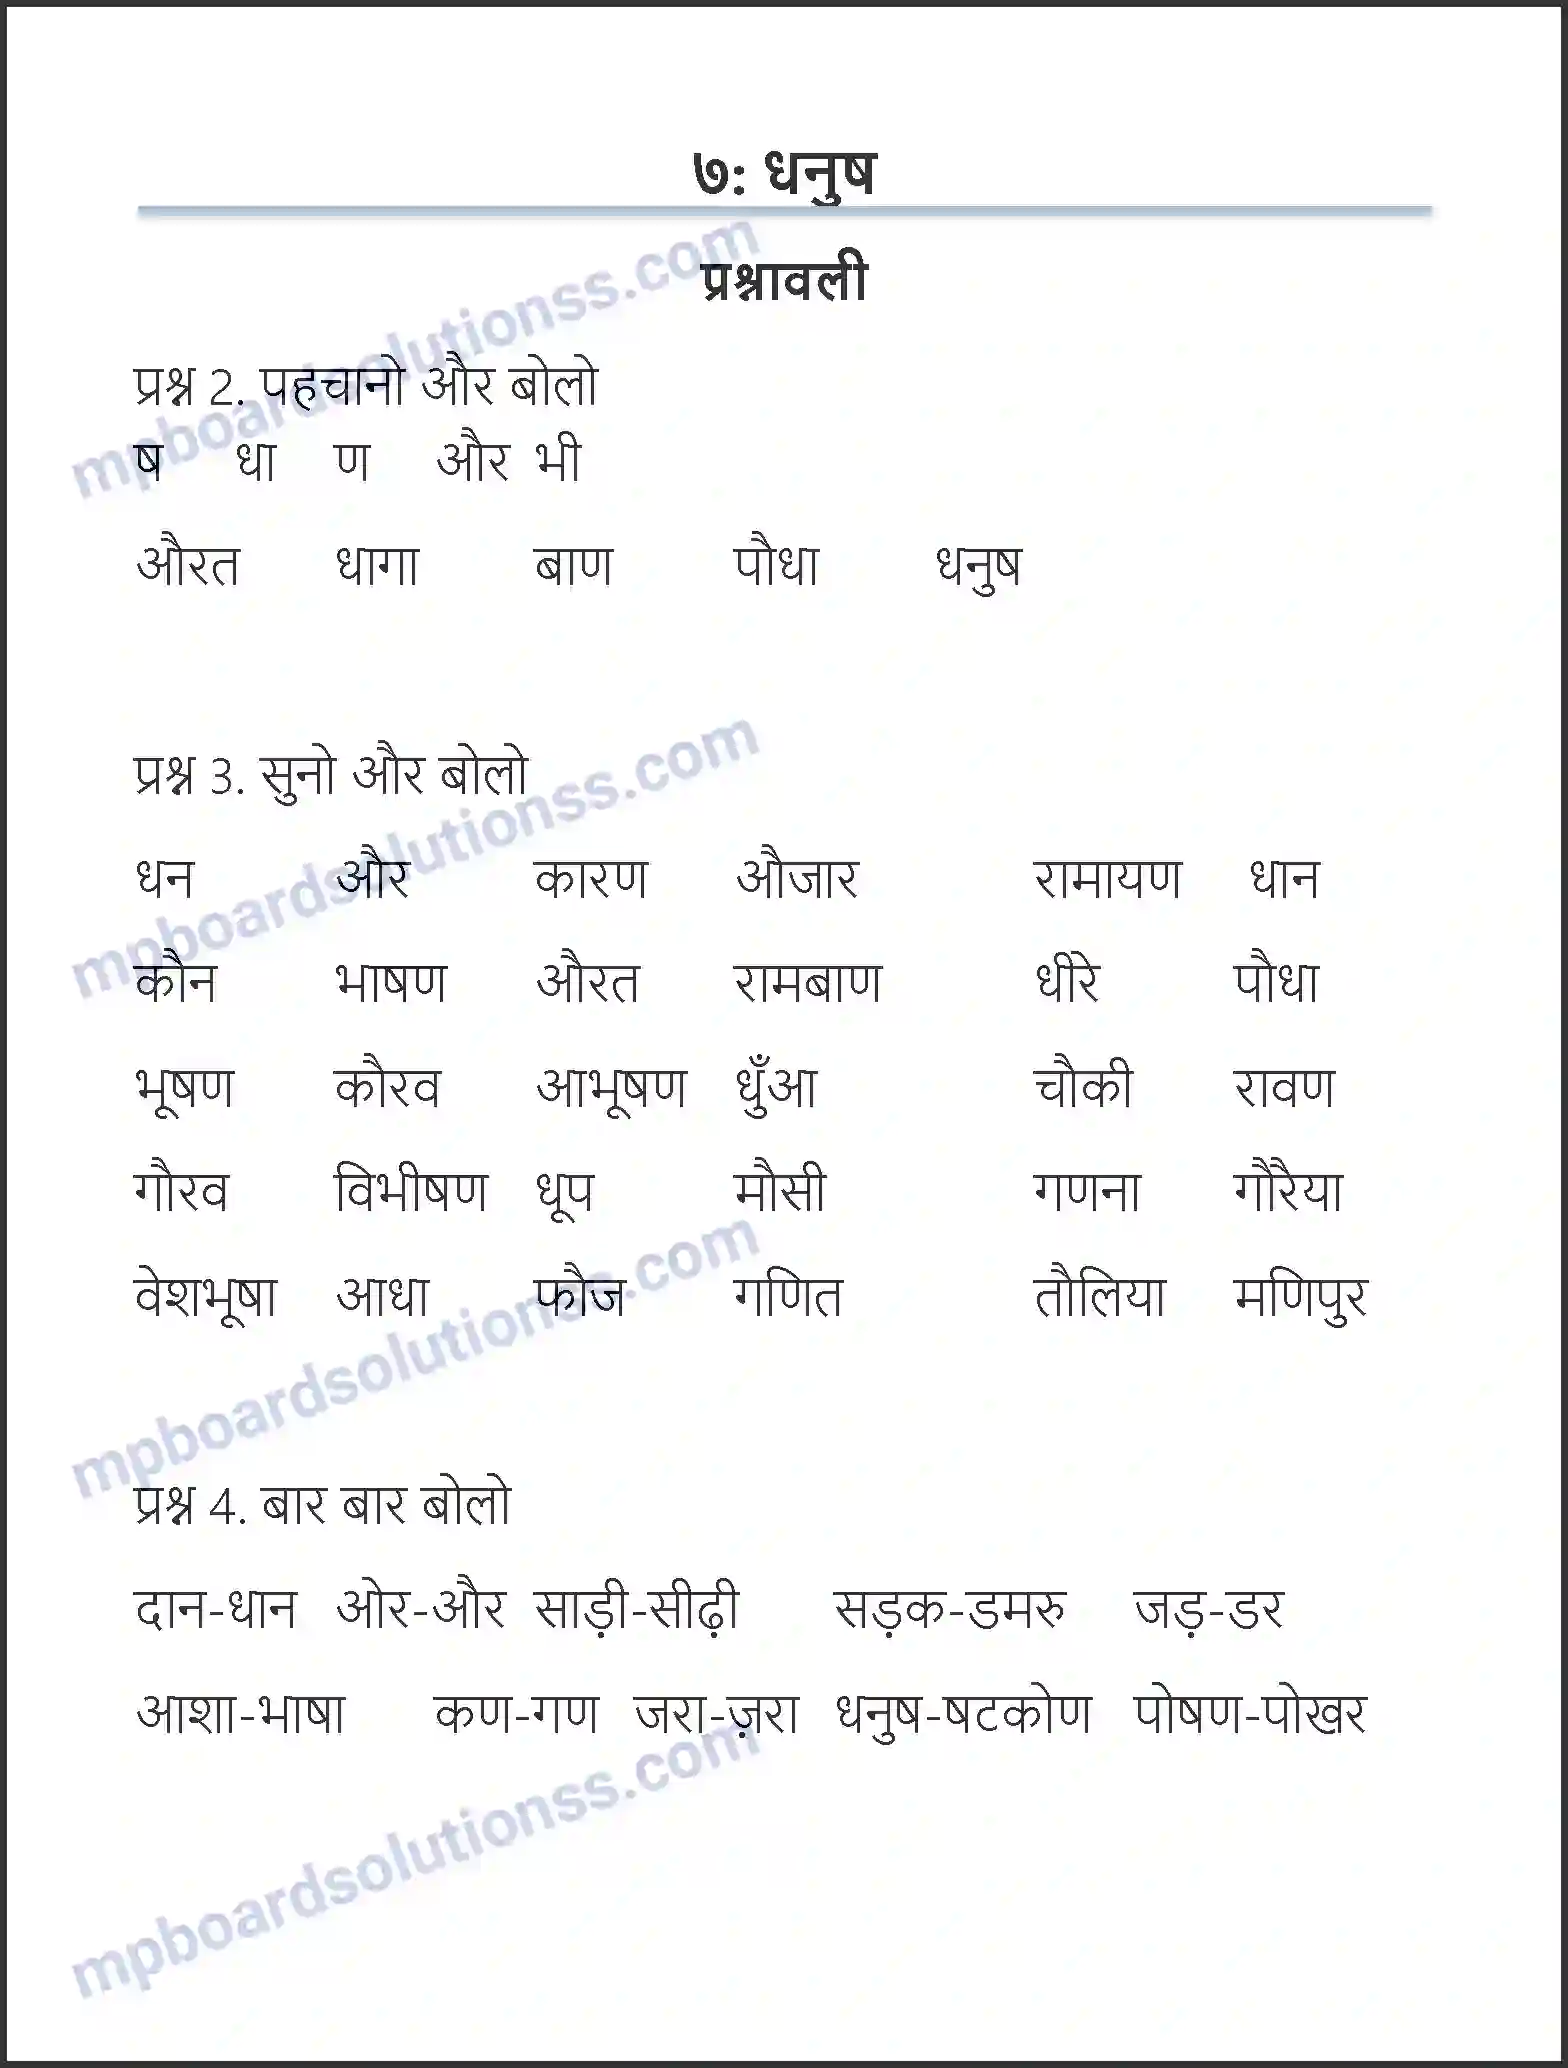 ७: धनुष
प्रश्नावली
प्रश्न 2. पहचानो और बोलो
ष धा ण और भी
औरत धागा बाण पौधा धनुष
प्रश्न 3. सुनो और बोलो
धन और कारण औजार रामायण धान
कौन भाषण औरत रामबाण धीरे पौधा
भूषण कौरव आभूषण धुँआ चौकी रावण
गौरव विभीषण धूप मौसी गणना गौरैया
वेशभूषा आधा फौज गणित तौलिया मणिपुर
प्रश्न 4. बार बार बोलो
दान-धान ओर-और साड़ी-सीढ़ी सड़क-डमरु जड़-डर
आशा-भाषा कण-गण जरा-ज़रा धनुष-षटकोण पोषण-पोखर
mpboardsolutionss.com
mpboardsolutionss.com
mpboardsolutionss.com
mpboardsolutionss.com